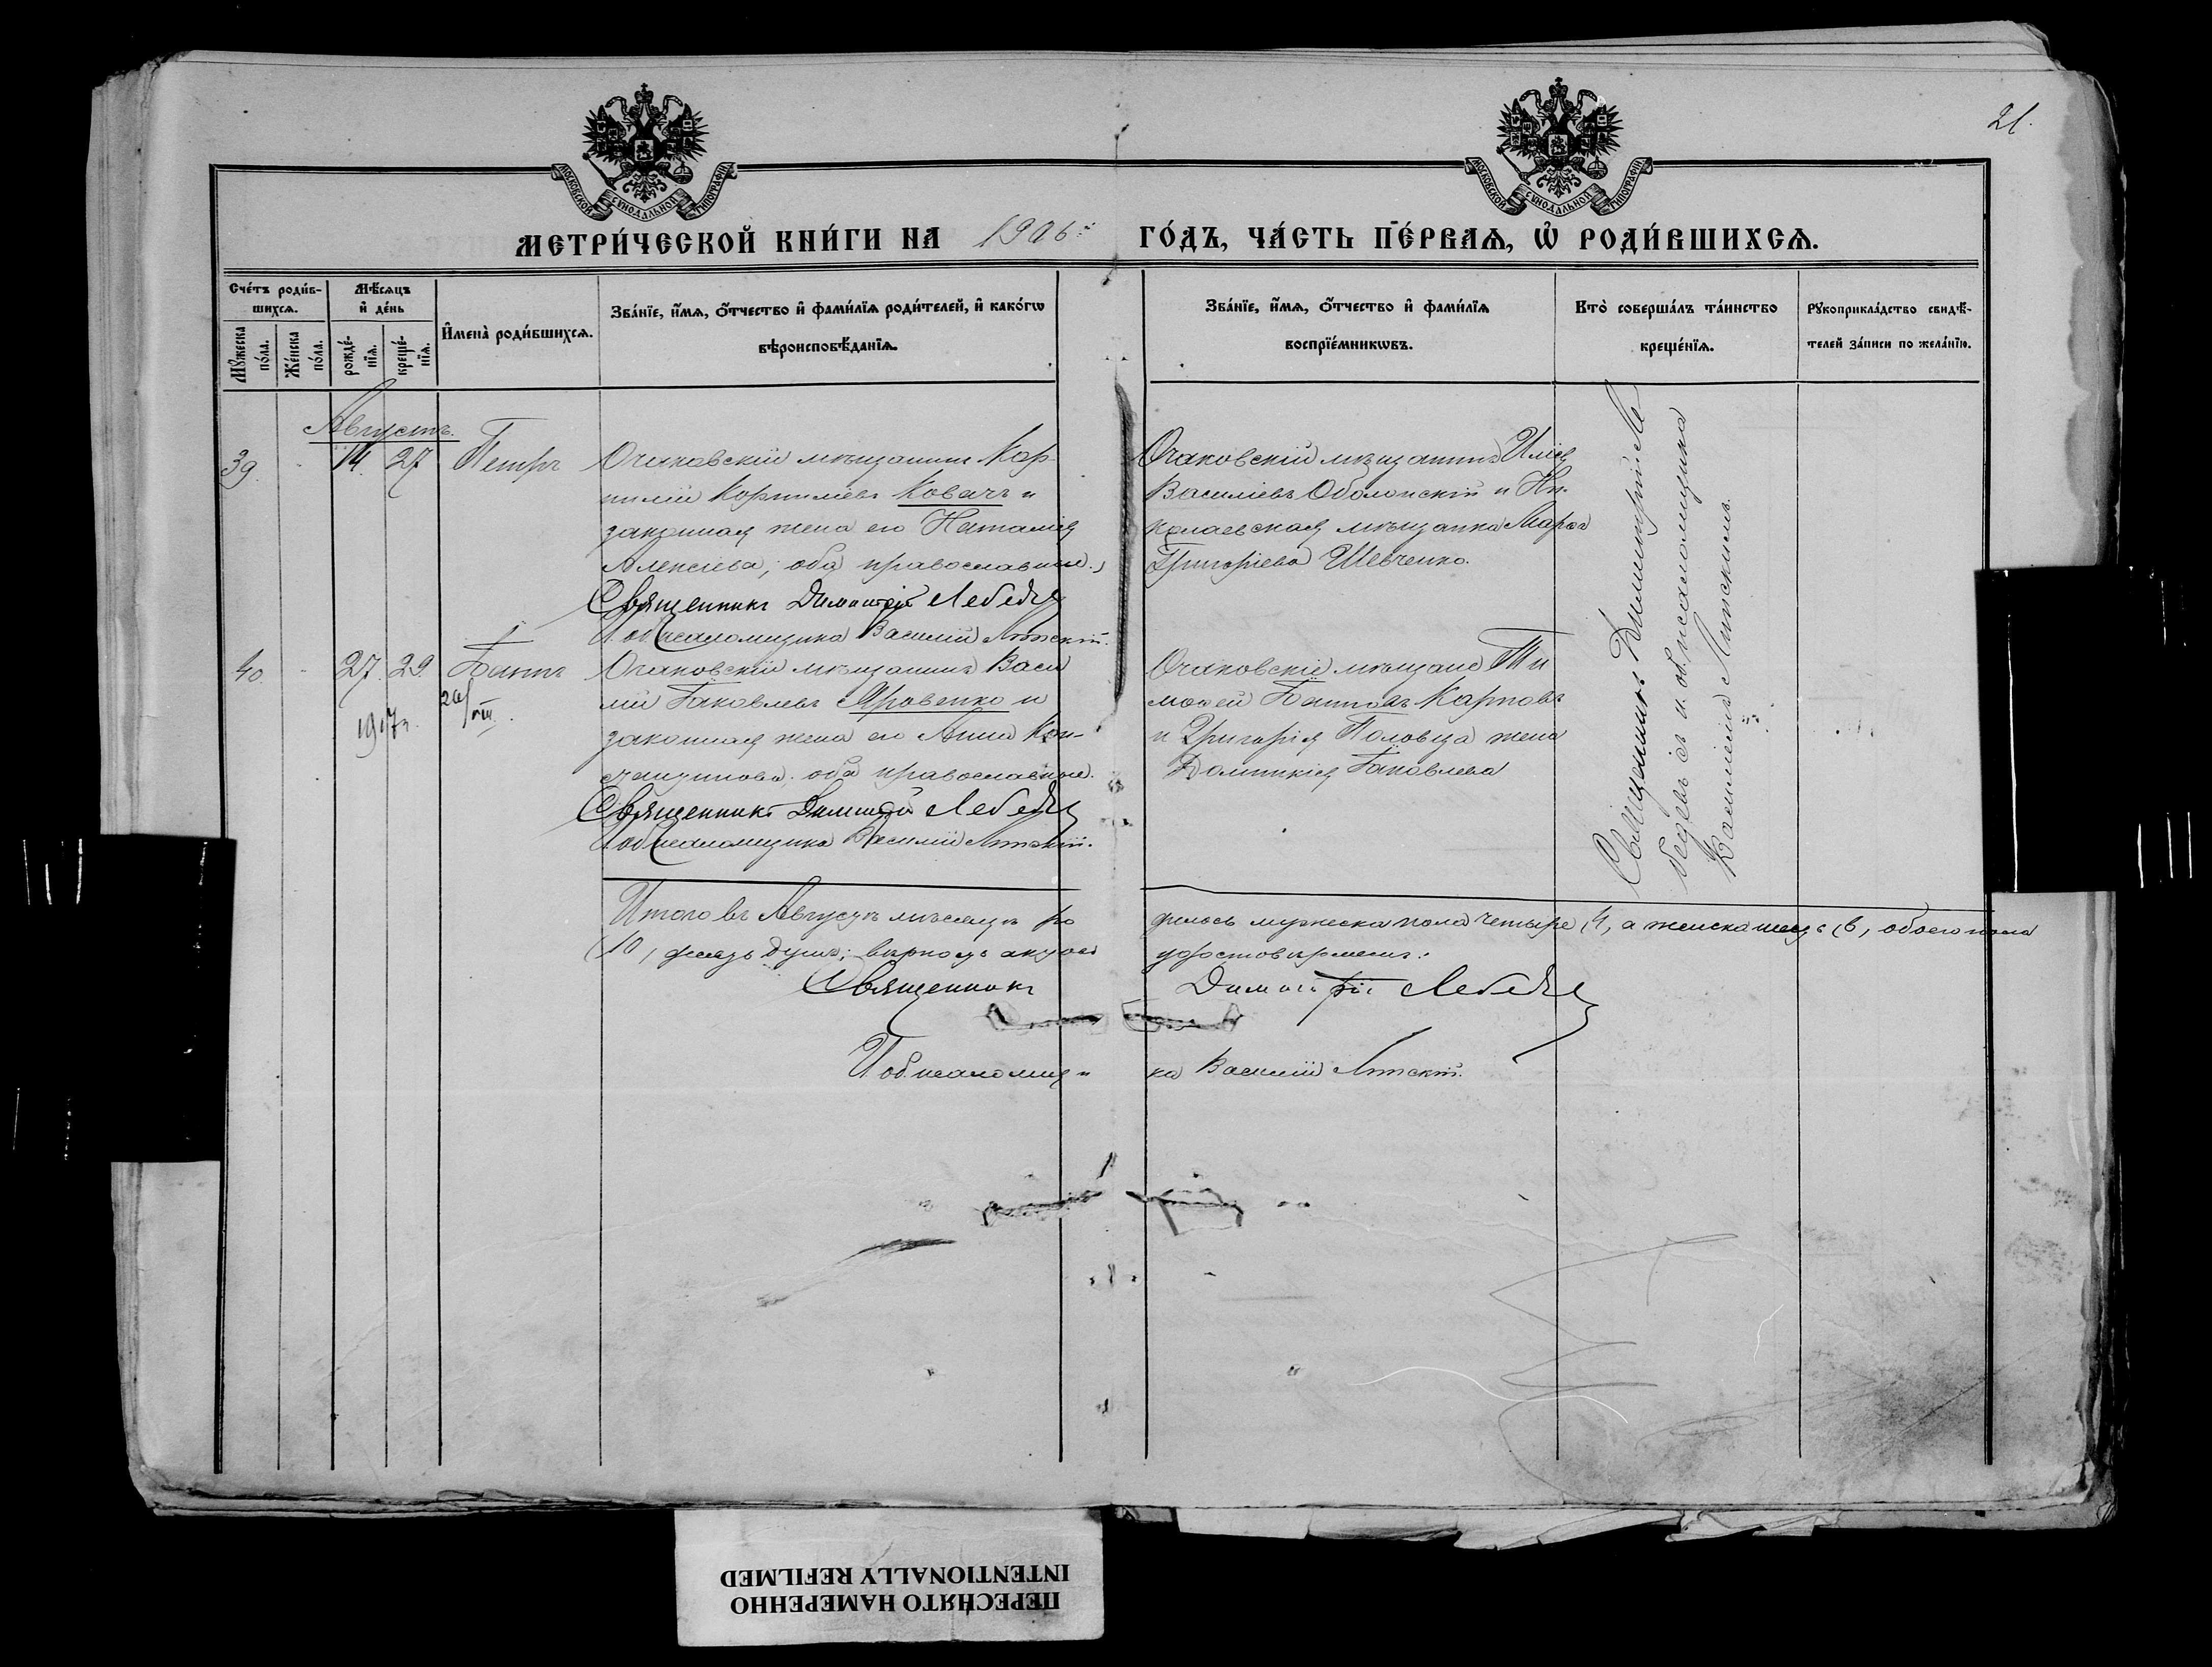 21.
МОСКОВСКОЙ СѴНОДАЛЬНОЙ ТИПОГРАФІИ
МОСКОВСКОЙ СѴНОДАЛЬНОЙ ТИПОГРАФІИ
МЕТРИ́ЧЕСКОЙ КНИ́ГИ НА 1906 ГО́ДЪ, ЧА́СТЬ ПЕ́РВАЯ, Ѡ҆ РОДИ́ВШИХСЯ.
Сче́тъ роди́вшихся.
Мꙋ́жеска по́ла.
Же́нска по́ла.
Мѣ́сяцъ и҆ де́нь
рожде́нїя.
креще́нїя.
И҆мена̀ роди́вшихся.
Зва́нїе, и҆́мя, ѻ҆́тчество и҆ фами́лїя роди́телей, и҆ како́гѡ
вѣроисповѣ́данїя.
Зва́нїе, и҆́мя, ѻ҆́тчество и҆ фами́лїя
воспрїе́мникѡвъ.
Кто̀ соверша́лъ та́инство
креще́нїя.
Рꙋкоприкла́дство свидѣ́-
телей за́писи по жела́нїю.
Августъ.
39. 14. 27 Петръ
Очаковскій мѣщанинъ Кор-
нилій Корниліевъ Ковачъ и
законная жена его Наталія
Алексіева, оба православные.
Священникъ Димитрій Лебедевъ
И. об. псаломщика Василій
Очаковскій мѣщанинъ Илія
Василіевъ Оболонскій и Ни-
колаевская мѣщанка Марѳа
Григоріева Шевченко.
40. 27. 29.
1917 г. 26/VIII.
Очаковскій мѣщанинъ Васи
лій Іаковлевъ Яровенко и
законная жена его Анна Кон-
стантинова, оба православные.
Священникъ Димитрій Лебедевъ
И. об. псаломщика Василій
Очаковскіе мѣщане Ти
моѳей Карповъ
и Григорія Половца жена
Домникія Іаковлева
Священникъ Димитрій Ле-
бедевъ съ и. об. псаломщика
Василіемъ
Итого въ Августѣ мѣсяцѣ ро
дилось мужеска пола четыре (4), а женска шесть (6), обоего пола
(10) десять душъ; вѣрность акта
удостовѣряемъ:
Священникъ Димитрій Лебедевъ
И. об. псаломщи
ка Василій
ПЕРЕСНЯТО НАМЕРЕННО
INTENTIONALLY REFILMED